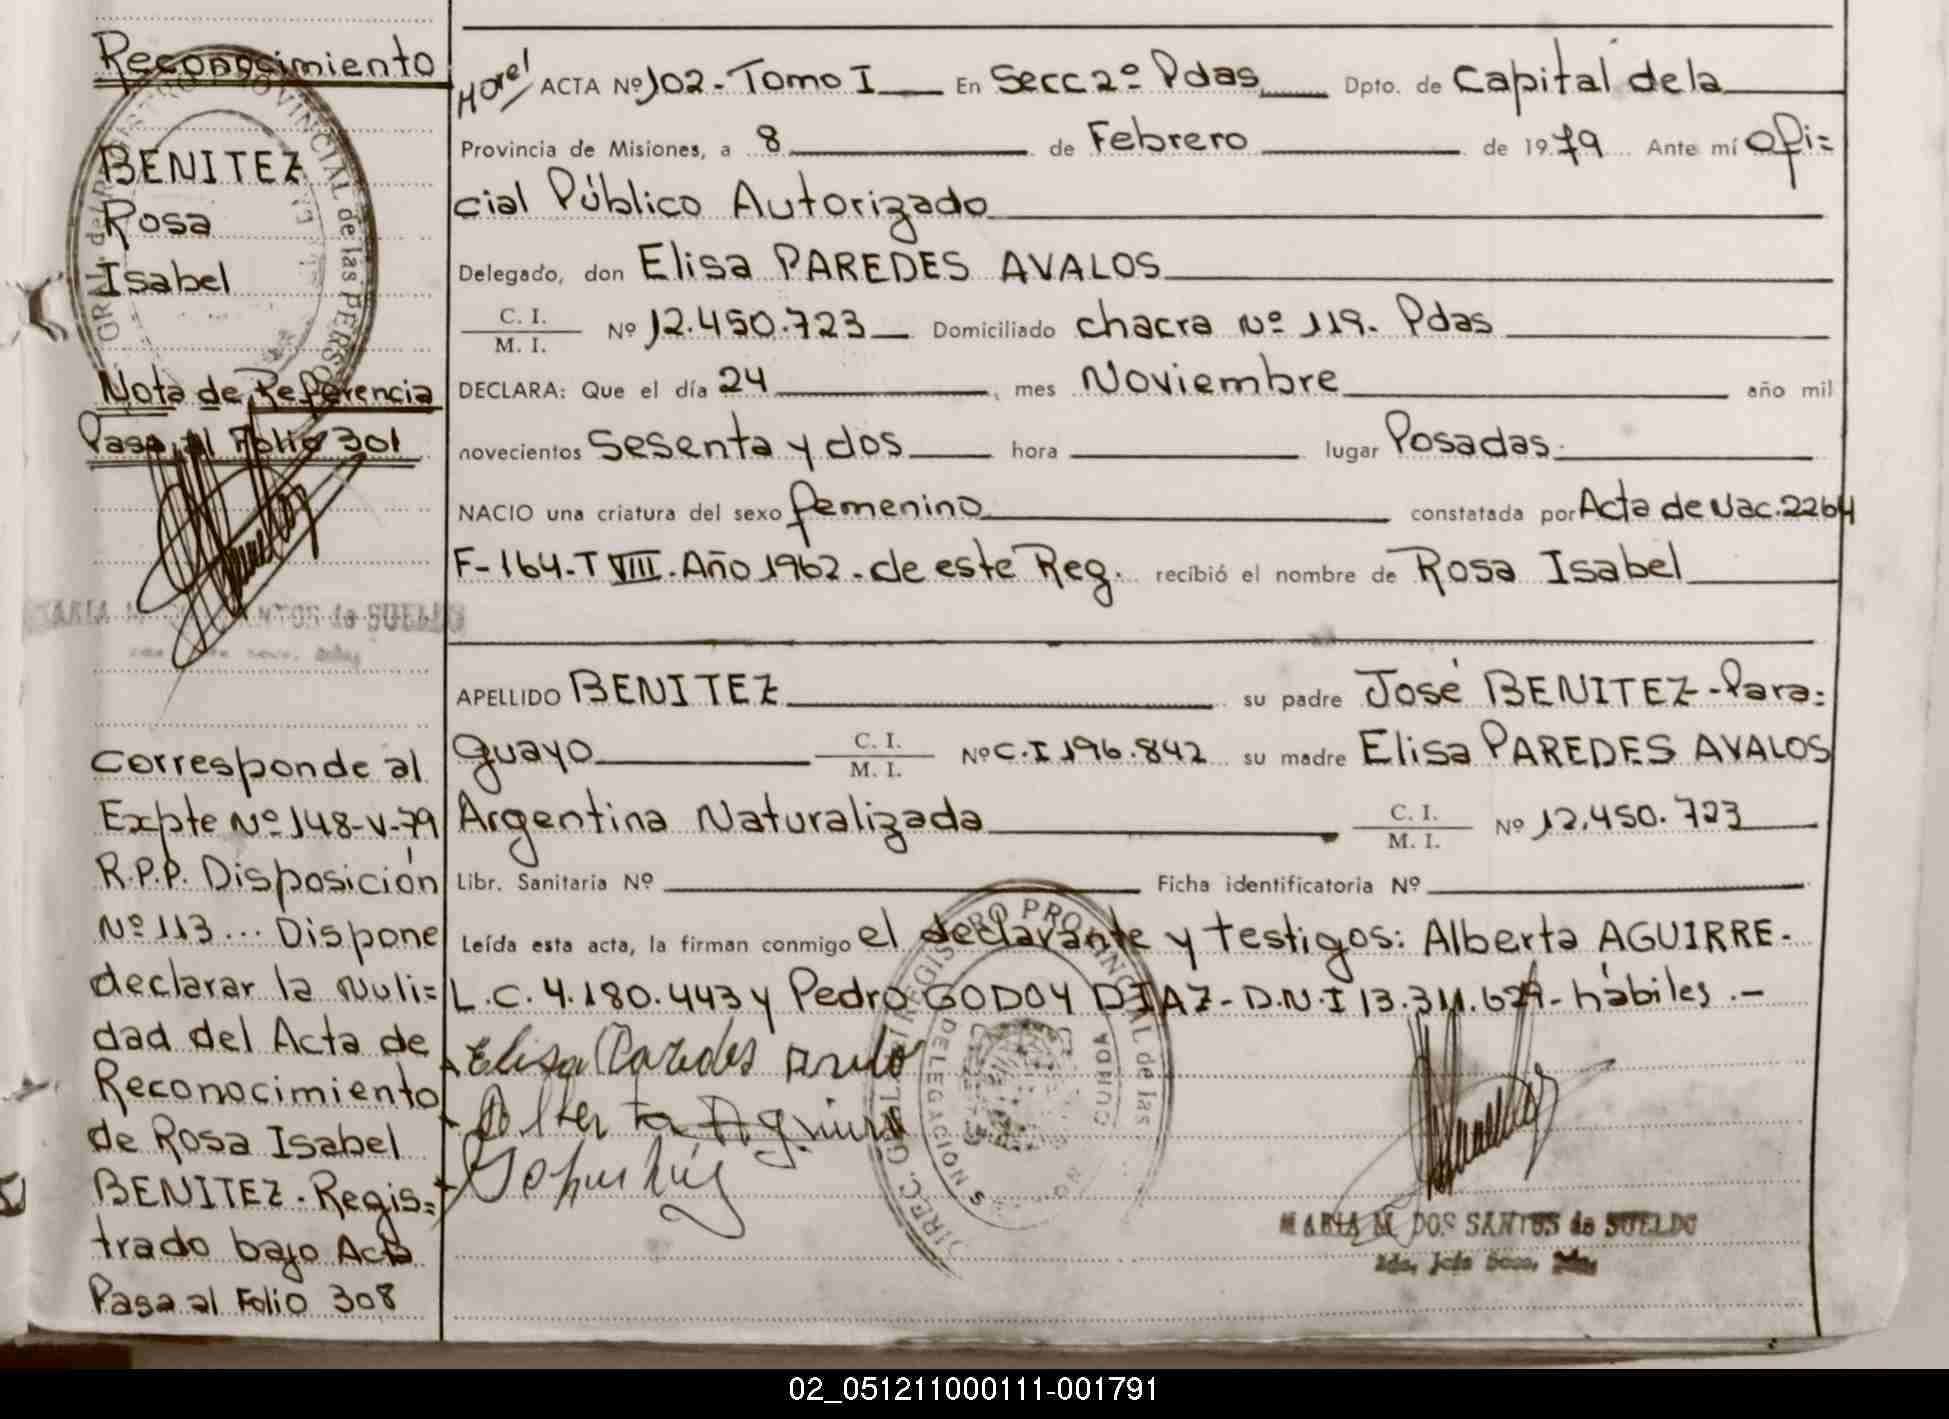 Reconocimiento
BENITEZ
Rosa
Isabel
Nota de Referencia
Pasa al Folio 301
Corresponde al
Expte Nº 148-V-79
R.P.P. Disposición
Nº 113... Dispone
declarar la Nuli=
dad del Acta de
Reconocimiento
de Rosa Isabel
BENITEZ. Regis=
trado bajo Acta
Pasa al Folio 308
ACTA Nº 102-Tomo I En Secc 2º Pdas Dpto. de Capital de la
Provincia de Misiones, a 8 de Febrero de 1979 Ante mí Ofi=
cial Público Autorizado
Delegado, don Elisa PAREDES AVALOS
C. I.
M. I. Nº 12.450.723 Domiciliado chacra Nº 119- Pdas
DECLARA: Que el día 24, mes Noviembre año mil
novecientos Sesenta y dos hora lugar Posadas.
NACIO una criatura del sexo femenino constatada por Acta de Nac. 2264
F-164-T VIII. Año 1962. de este Reg. recibió el nombre de Rosa Isabel
APELLIDO BENITEZ su padre José BENITEZ-Para=
guayo C. I. M. I. Nº C.I 196.842 su madre Elisa PAREDES AVALOS
Argentina Naturalizada C. I. M. I. Nº 12.450.723
Libr. Sanitaria Nº Ficha identificatoria Nº
Leída esta acta, la firman conmigo el declarante y testigos: Alberta AGUIRRE-
L.C. 4.180.443 y Pedro GODOY DIAZ-D.N.I 13.311.629-hábiles.-
Elisa Paredes
Alberta Aguirre
DIREC. GRAL. del REGISTRO PROVINCIAL de las
DELEGACIONES
MARIA M. DOS SANTOS de SUELDO
02_051211000111-001791